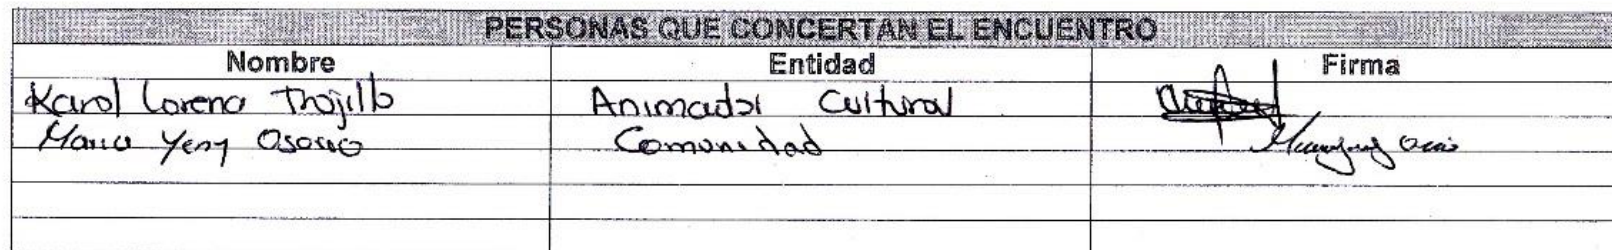 PERSONAS QUE CONCERTAN EL ENCUENTRO
Nombre Entidad Firma
Karol Lorena Trojillo Animador Cultural
Maria Yeny Osorio Comunidad